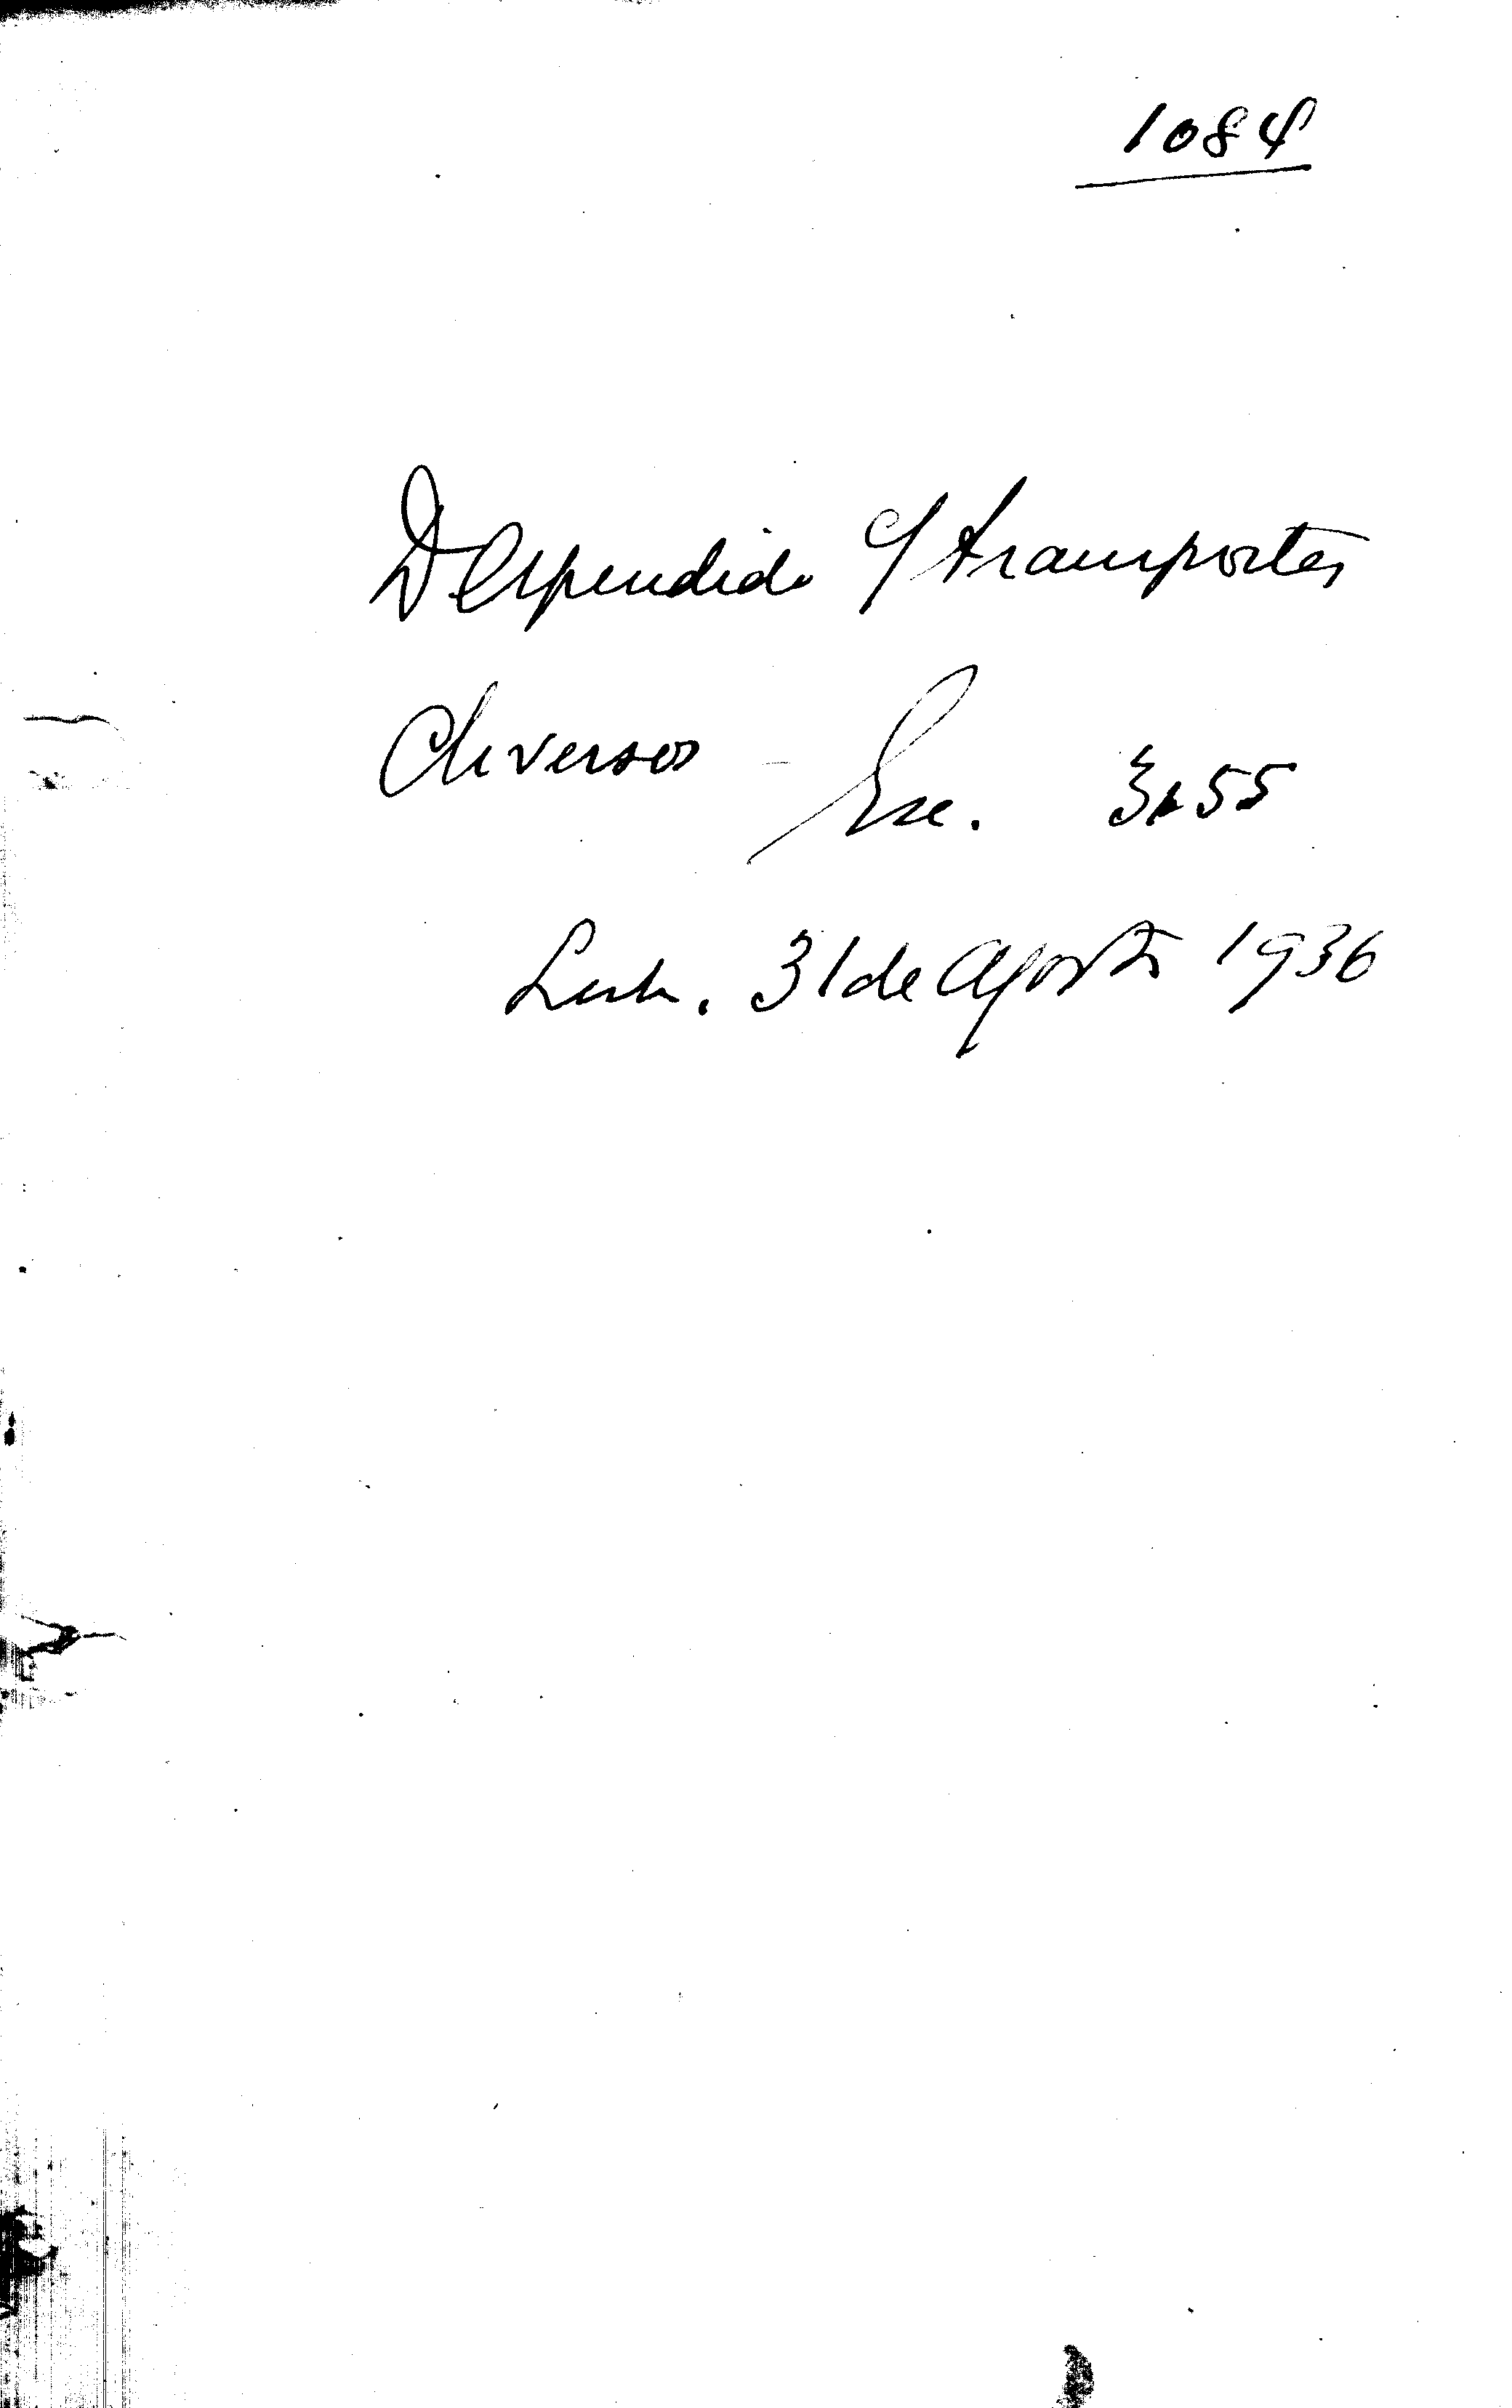 1084
Despendido c/ transportes
diversos - Esc. 3$55
Lisb. 31 de Agosto 1936